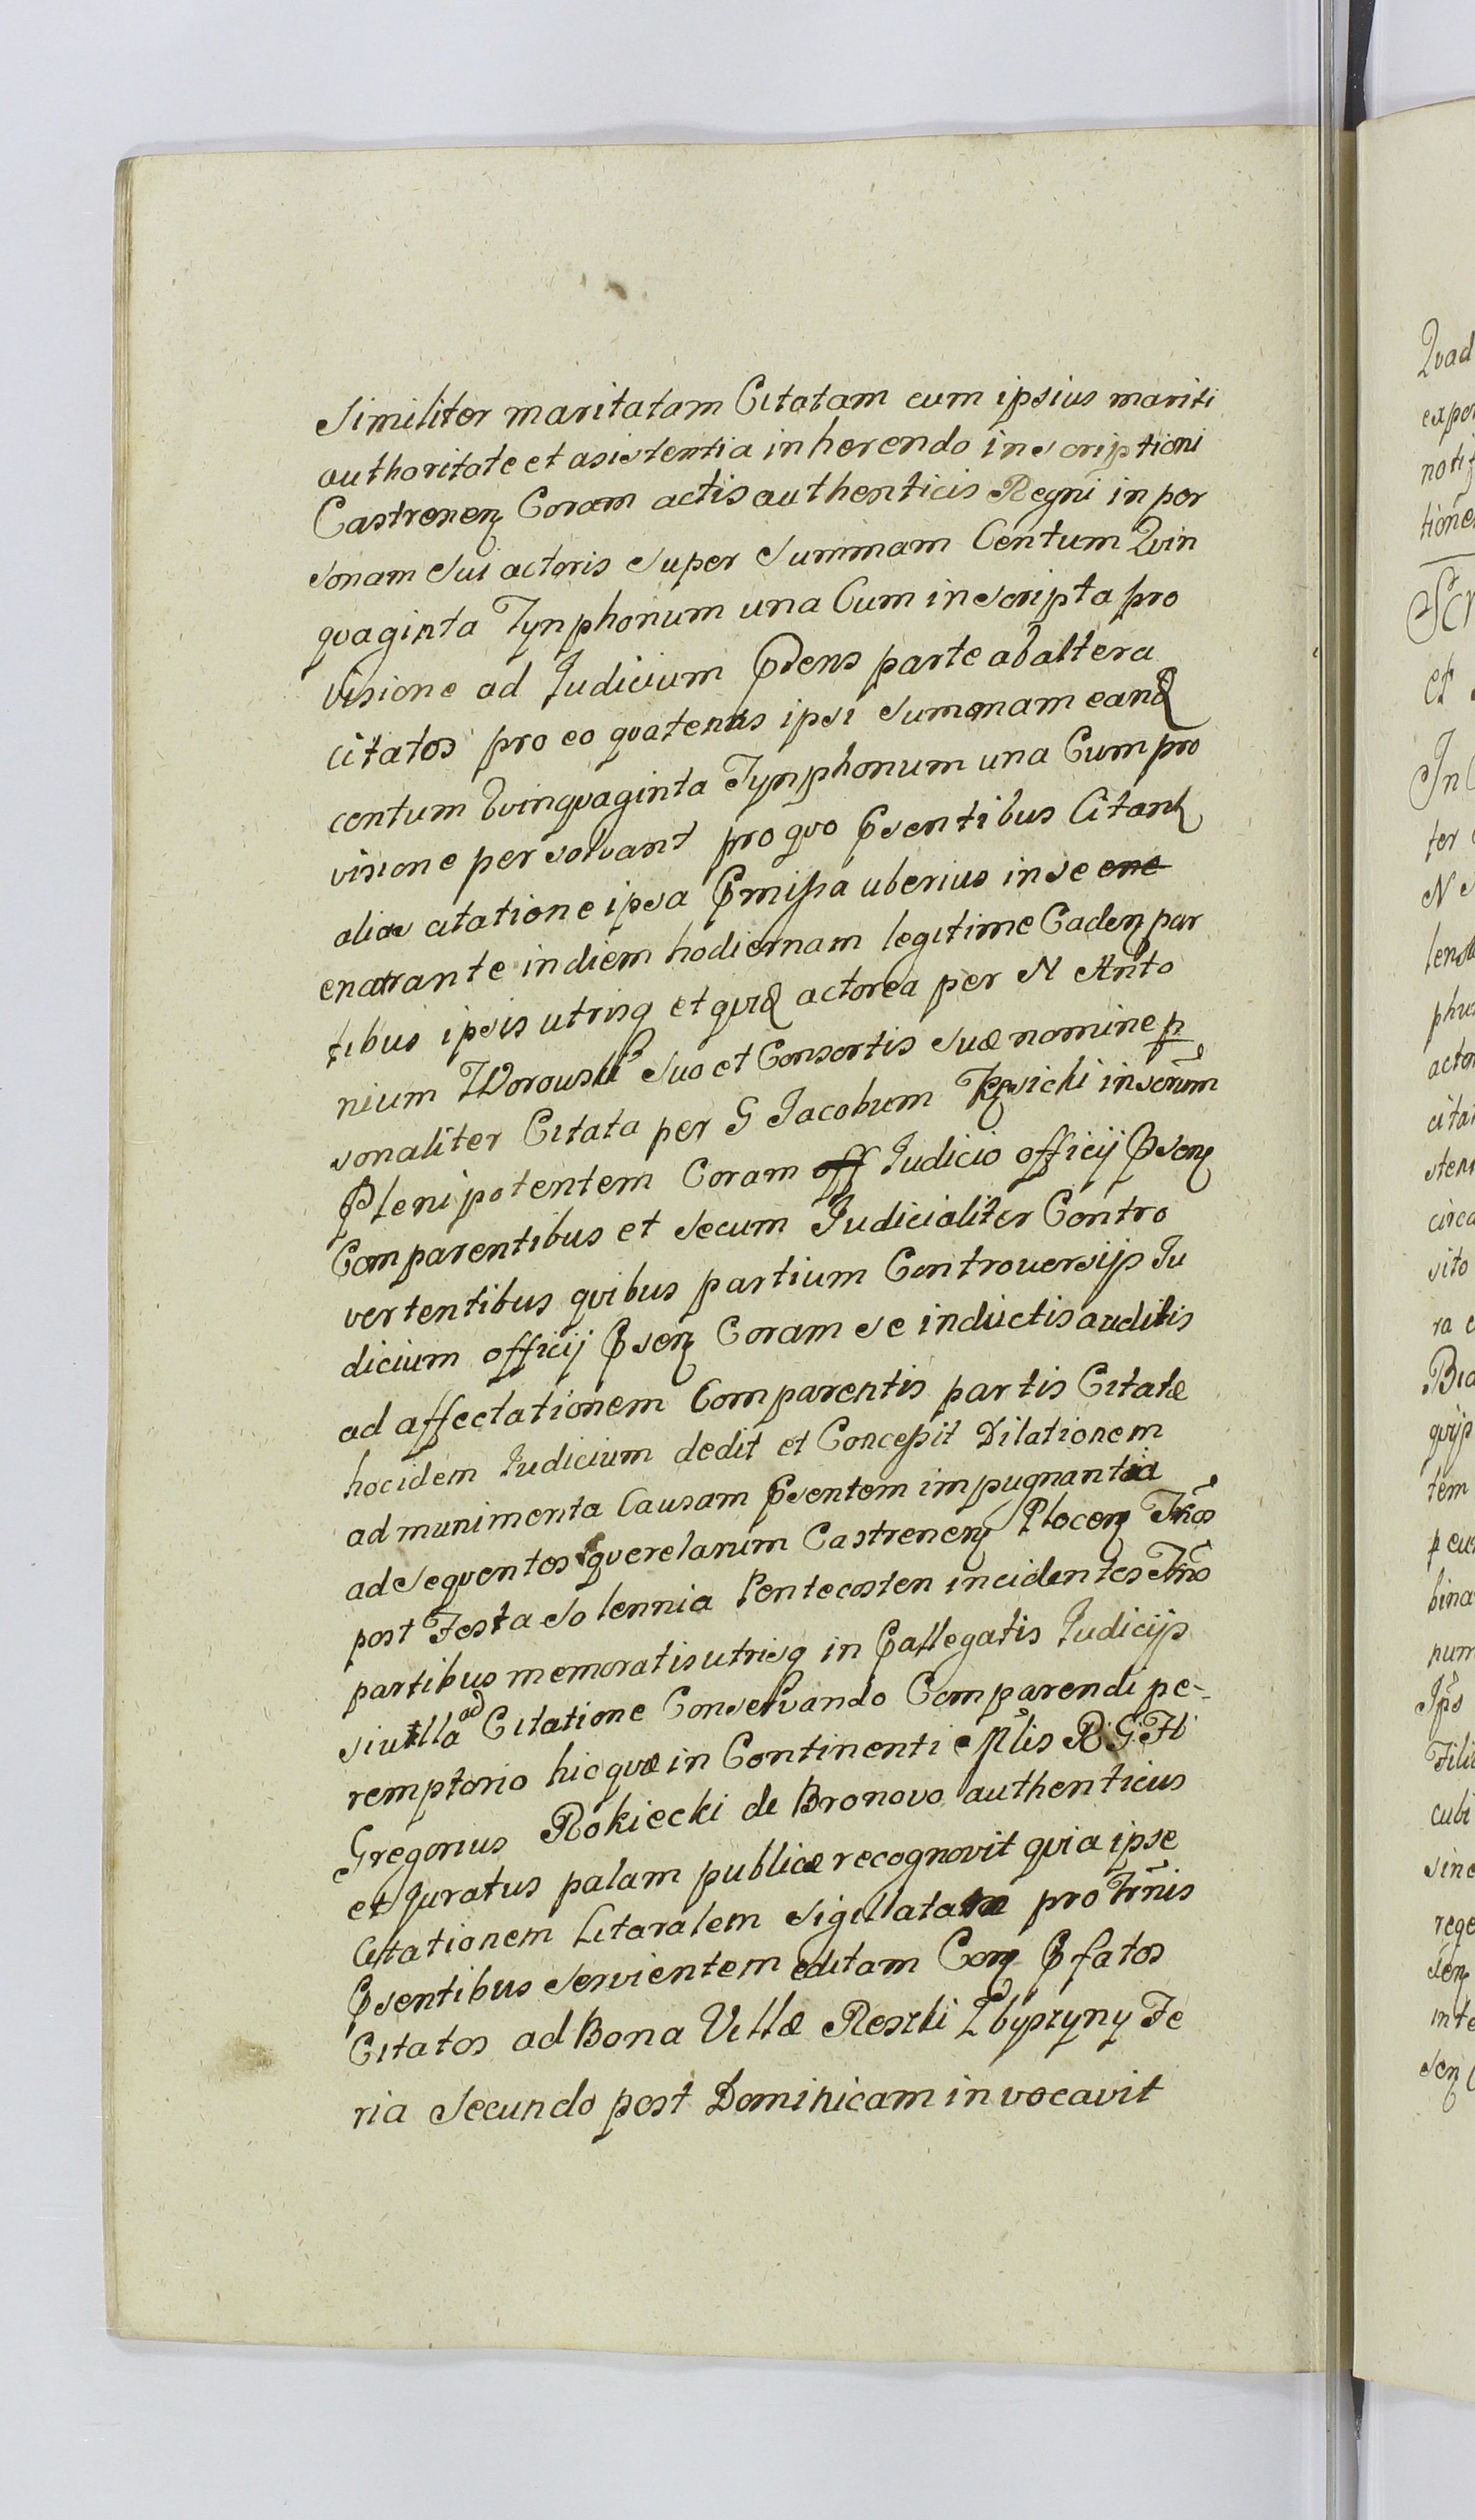 Similiter maritatam Citatam cum ipsius mariti
authoritate et asistentia inherendo inscriptioni
Castrenenz Coram actis authenticis Regni in per
sonam sui actoris super summam Centum Qvin
qvaginta Tynphonum una Cum inscripta pro
visione ad Judicium Psens parte ab altera
citatos pro eo qvatenus ipsi summam eand
centum Qvinqvaginta Tynphonum una Cum pro
visione persolvant pro qvo Psentibus Citant
alias citatione ipsa Pmissa uberius in se ene
enarrante in diem hodiernam legitime Cadenz par
tibus ipsis utrisq et qvid actorea per N Anto
nium Worouski suo et Consortis suæ nomine p
sonaliter Citata per G Jacobum inscrum
Plenipotentem Coram off Judicio officij Psenz
Comparentibus et secum Judicialiter Contro
vertentibus qvibus partium Controversijs Ju
dicium officij Psenz Coram se inductis auditis
ad affectationem Comparentis partis Citatæ
hocidem Judicium dedit et Concessit Dilationem
ad munimenta Causam Psentem impugnantia
ad seqventes qverelarum Castrenenz Plocenz Tnos
post Festa solennia Pentecosten incidentes Tnos
partibus memoratis utrisq in Pallegatis Judicijs
sivilla ad Citatione Conservando Comparendi pe-
remptorio hicqvæ in Continenti Mlis R: G: H
Gregorius Rokiecki de Bronovo authenticus
et Juratus palam publicæ recognovit qvia ipse
Citationem Litaralem sigillatam pro Trnis
Psentibus servientem editam Conz P fatos
Citatos ad Bona Villæ Reszki Fe
ria secundo post Dominicam invocavit